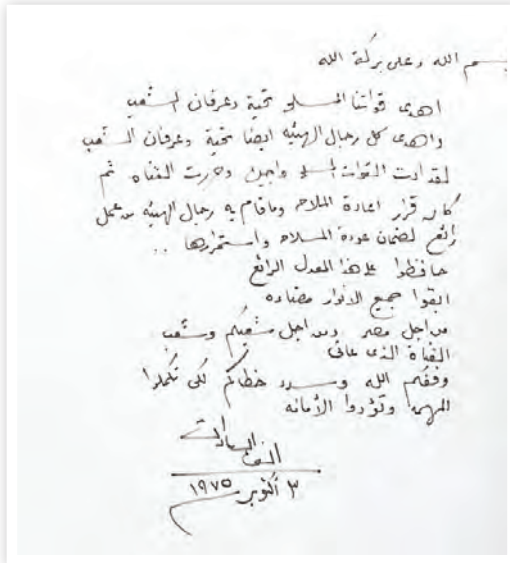 بسم الله وعلى بركة الله
اهدى قواتنا المسلحة تحية وعرفان الشعب
واهدى كل رجال الهيئه ايضا تحية وعرفان الشعب
لقد ادت القوات المسلحة واجبها وحررت القناه ثم
كان قرار اعادة الملاحه وماقام به رجال الهيئه من عمل
رائع لضمان عودة الملاحه واستمرارها ..
حافظوا على هذا المعدل الرائع
ابقوا جميع الانوار مضاءه
من اجل مصر ومن اجل شعبكم وشعب
القناة الذى عانى
وفقكم الله وسدد خطاكم لكى تكملوا
المهمة وتؤدوا الأمانه
انور السادات
٣ أكتوبر ١٩٧٥